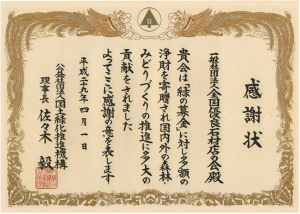 感謝状
一般社団法人全国優良石材店の会殿
貴会は「緑の募金」に対し多額の
浄財を寄贈され国内外の森林・
みどりづくりの推進に多大の
貢献をされました
よってここに感謝の意を表します
平成二十九年四月一日
公益社団法人国土緑化推進機構
理事長 佐々木 毅